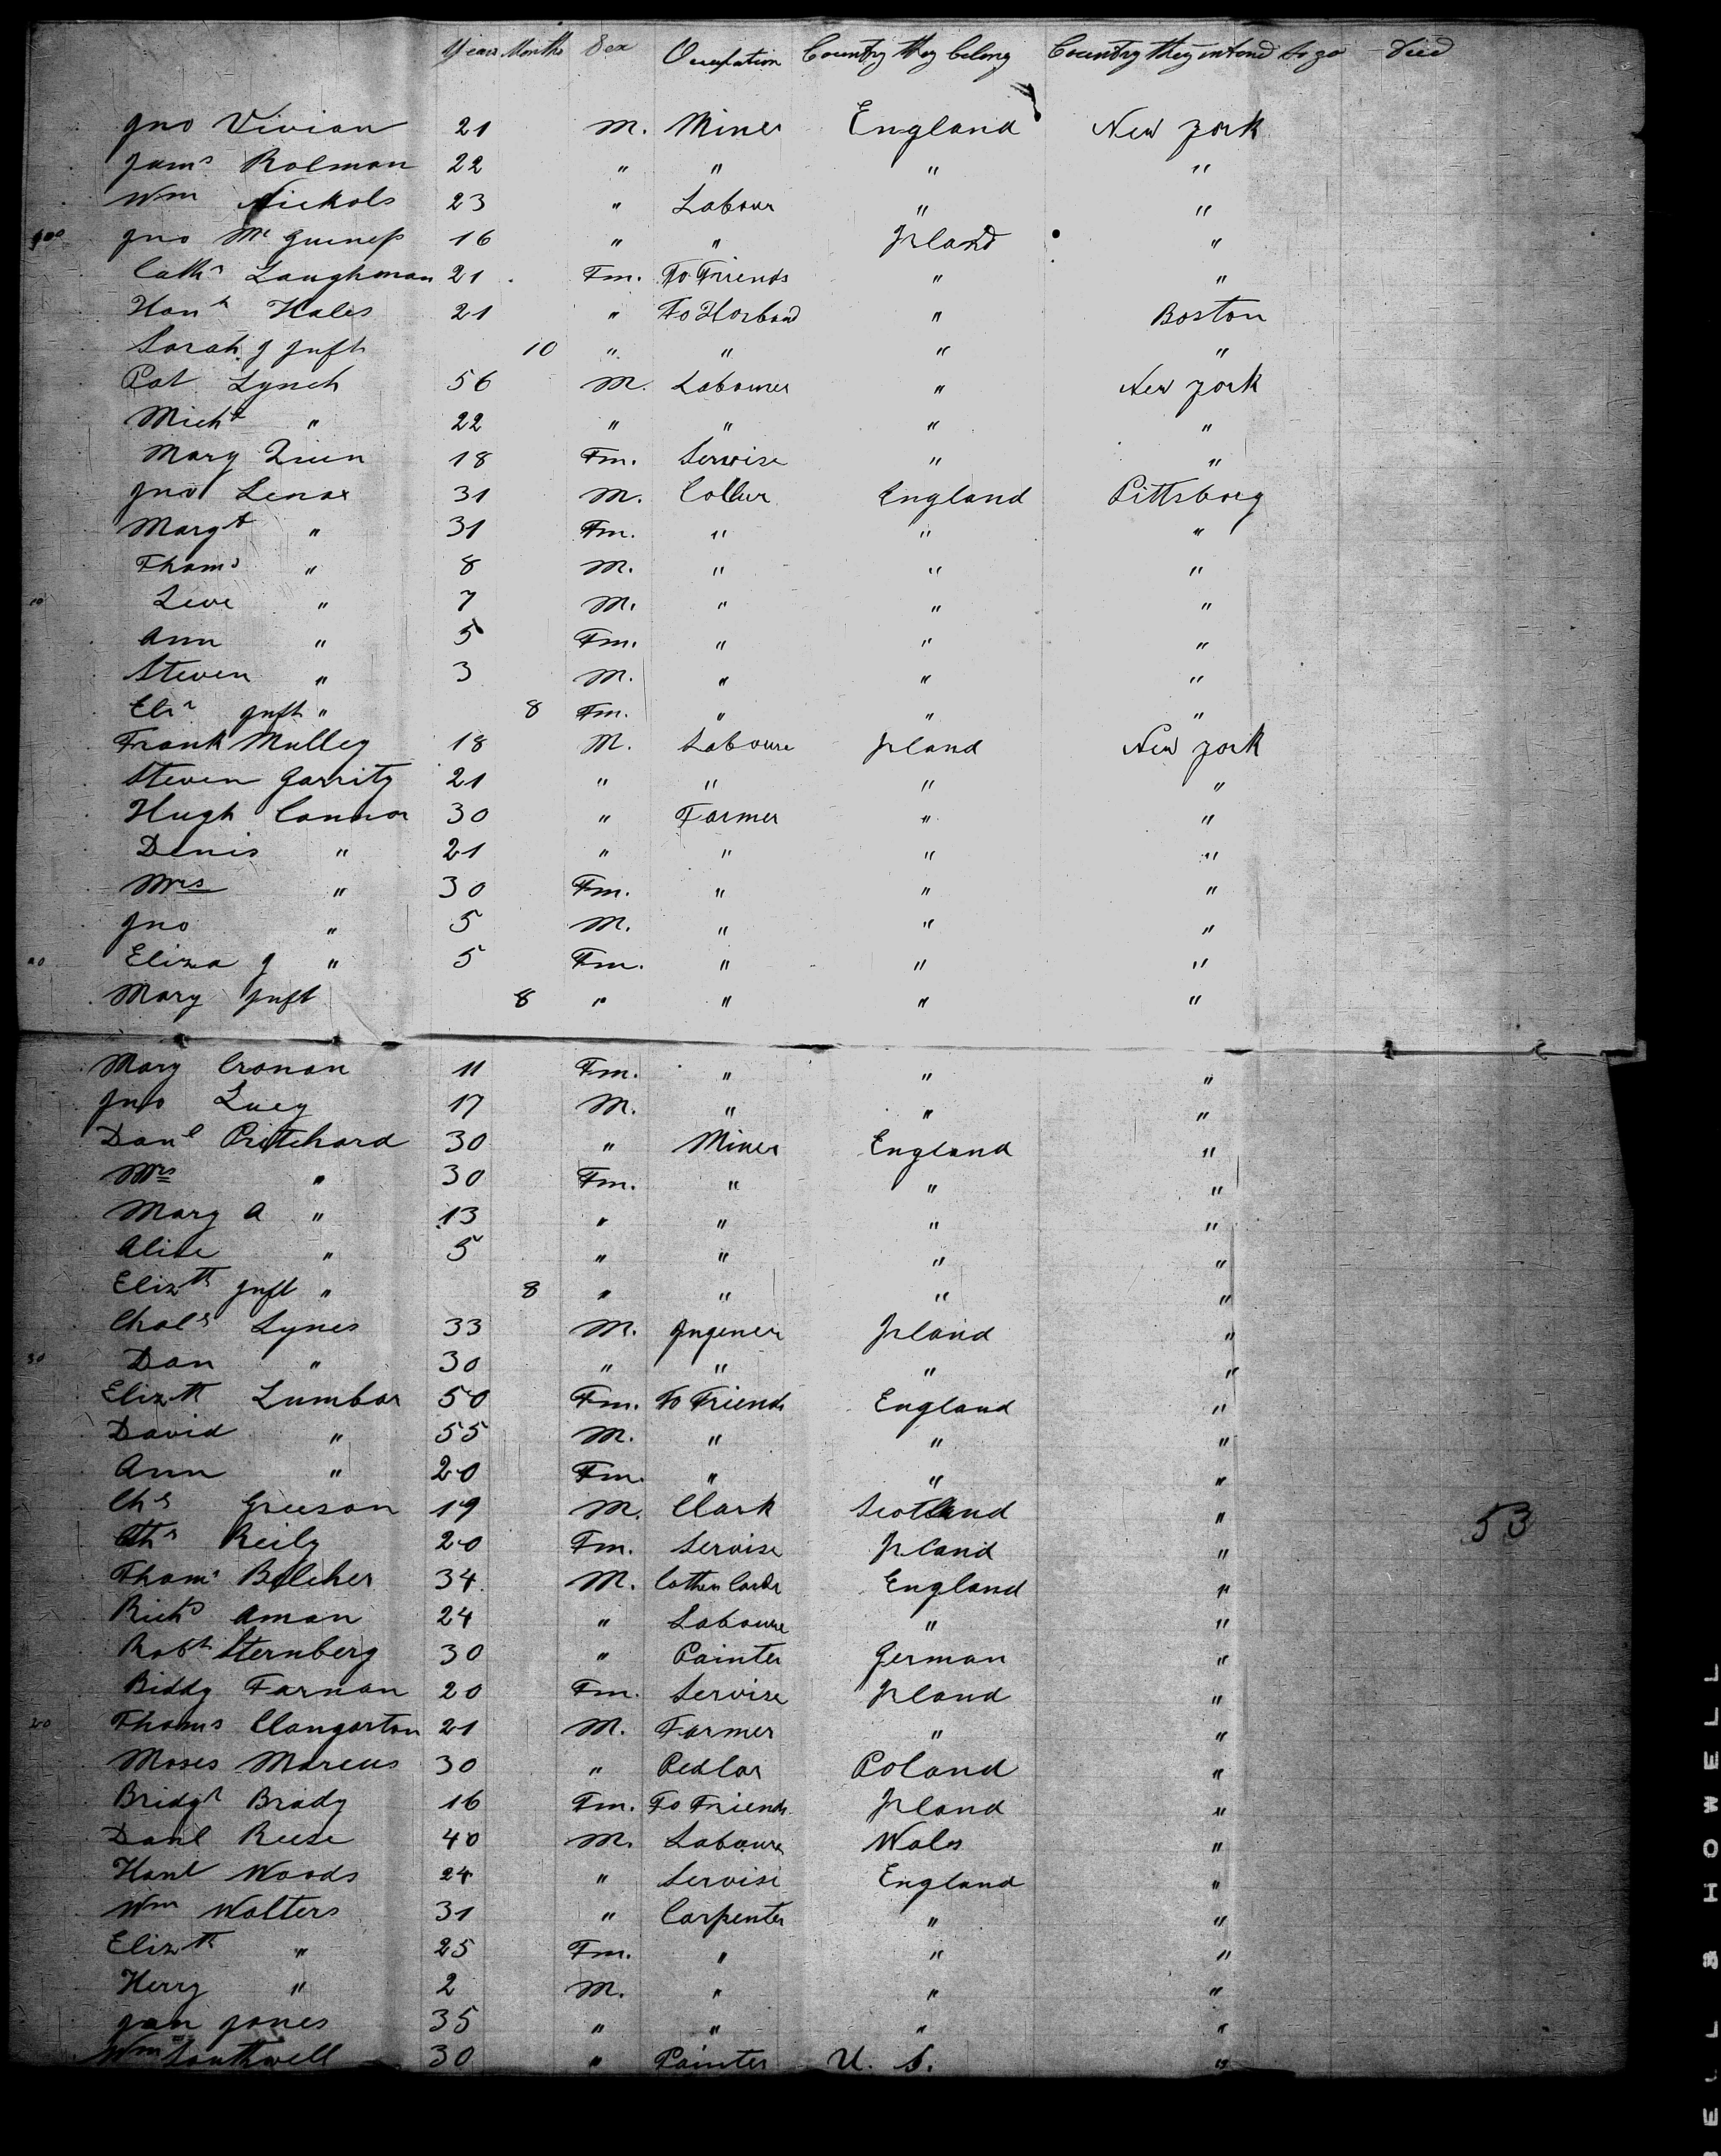 Years Months Sex Occupation Country they belong Country they intend to go Died
Jno Vivian 21 M. Miner England New York
Jams Rolman 22 " " " "
Wm Nickols 23 " Labour " "
Jno Mc Guiness 16 " " Ireland "
Cathr Laughman 21 Fm. To Friends " "
Hanh Hales 21 " To Hosband " Boston
Sarah J Inft 10 " " " "
Pat Lynch 56 M. Labourer " New York
Michl " 22 " " " "
Mary Quin 18 Fm. Servise " "
Jno Lenox 31 M. Collier England Pittsborg
Margt " 31 Fm. " " "
Thoms " 8 M. " " "
10 Leve " 7 M. " " "
Ann " 5 Fm. " " "
Steven " 3 M. " " "
Elir Inft " 8 Fm. " " "
Frank Mulley 18 M. Laboure Irland New York
Steven Garrity 21 " " " "
Hugh Connor 30 " Farmer " "
Denis " 21 " " " "
Mrs " 30 Fm. " " "
Jno " 5 M. " " "
20 Eliza J " 5 Fm. " " "
Mary Inft 8 " " " "
Mary Cronan 11 Fm. " " "
Jno Lucy 17 M. " " "
Danl Pritchard 30 " Miner England "
Mrs " 30 Fm. " " "
Mary A " 13 " " " "
Alice " 5 " " " "
Elizth Inft " 8 " " " "
Chals Lynes 33 M. Ingener Irland "
30 Dan " 30 " " " "
Elizth Lumbar 50 Fm. To Friends England "
David " 55 M. " " "
Ann " 20 Fm. " " "
Chs Greeson 19 M. Clark Scotland " 53
Cthr Reily 20 Fm. Servise Irland "
Thoms Belcher 34 M. England "
Richd Aman 24 " Laboure " "
Robt Sternberg 30 " Painter German "
Biddy Farnan 20 Fm. Servise Irland "
Thoms Clangarton 21 M. Farmer " "
Moses Marcus 30 " Pedlar Poland "
Bridgt Brady 16 Fm. To Friends Irland "
Danl Reese 40 M. Laboure Wales "
Hanl Woods 24 " Servise England "
Wm Walters 31 " Carpenter " "
Elizth " 25 Fm. " " "
Herry " 2 M. " " "
Jan Jones 35 " " " "
Wm Southwell 30 " Painter U. S. "
BELL & HOWELL